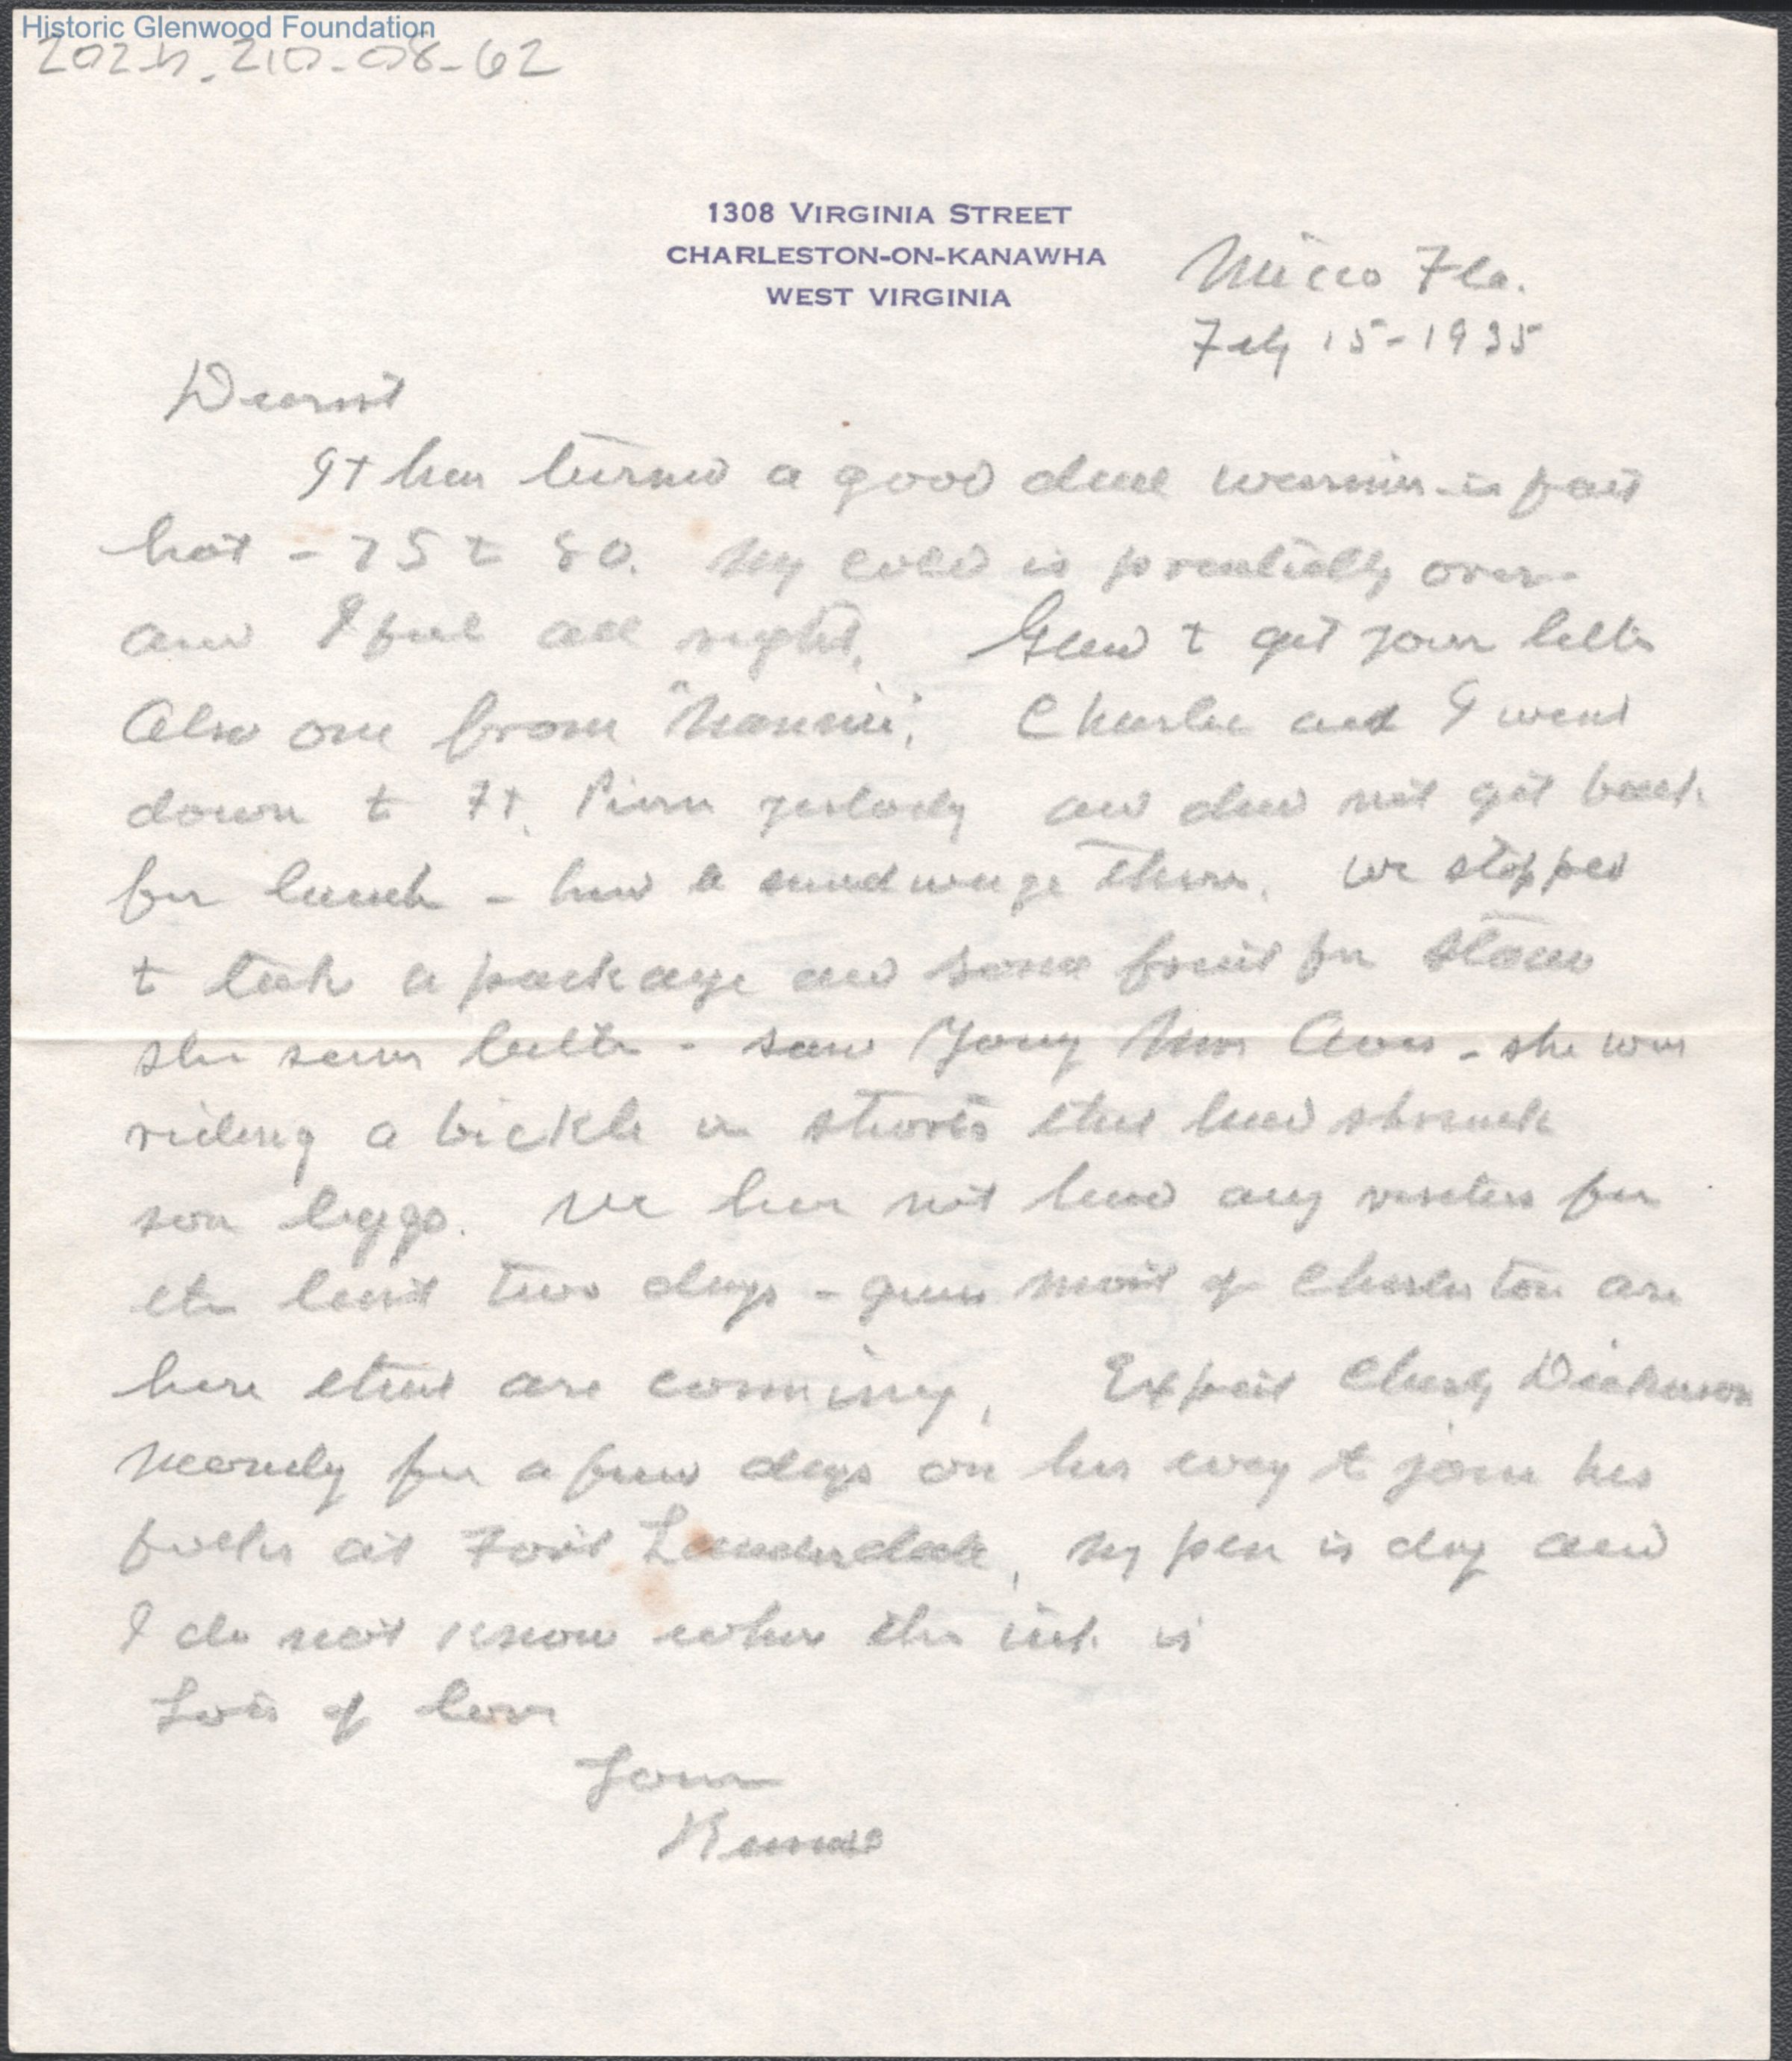 Historic Glenwood Foundation
2024.210-08-62
1308 VIRGINIA STREET
CHARLESTON-ON-KANAWHA
WEST VIRGINIA
Micco Fla.
Feby 15-1935
Dearest
It has turned a good deal warmer - in fact
hot - 75 to 80. My cold is practically over
and I feel all right. Glad to get your letter
Also one from "Nannie". Charlie and I went
down to Ft. Pierce yesterday and did not get back
for lunch - had a sandwage there. We stopped
to take a package and some fruit for
she seems better - saw Young Mrs - she was
riding a bickle in shorts that had shrunk
som leggs. We have not had any visitors for
the last two days - guess most of Charleston are
here that are comming. Expect Charly Dickinson
for a few days on his way to join his
folks at Fort Lauderdale. My pen is dry and
I do not know where the ink is
Lots of love
Your